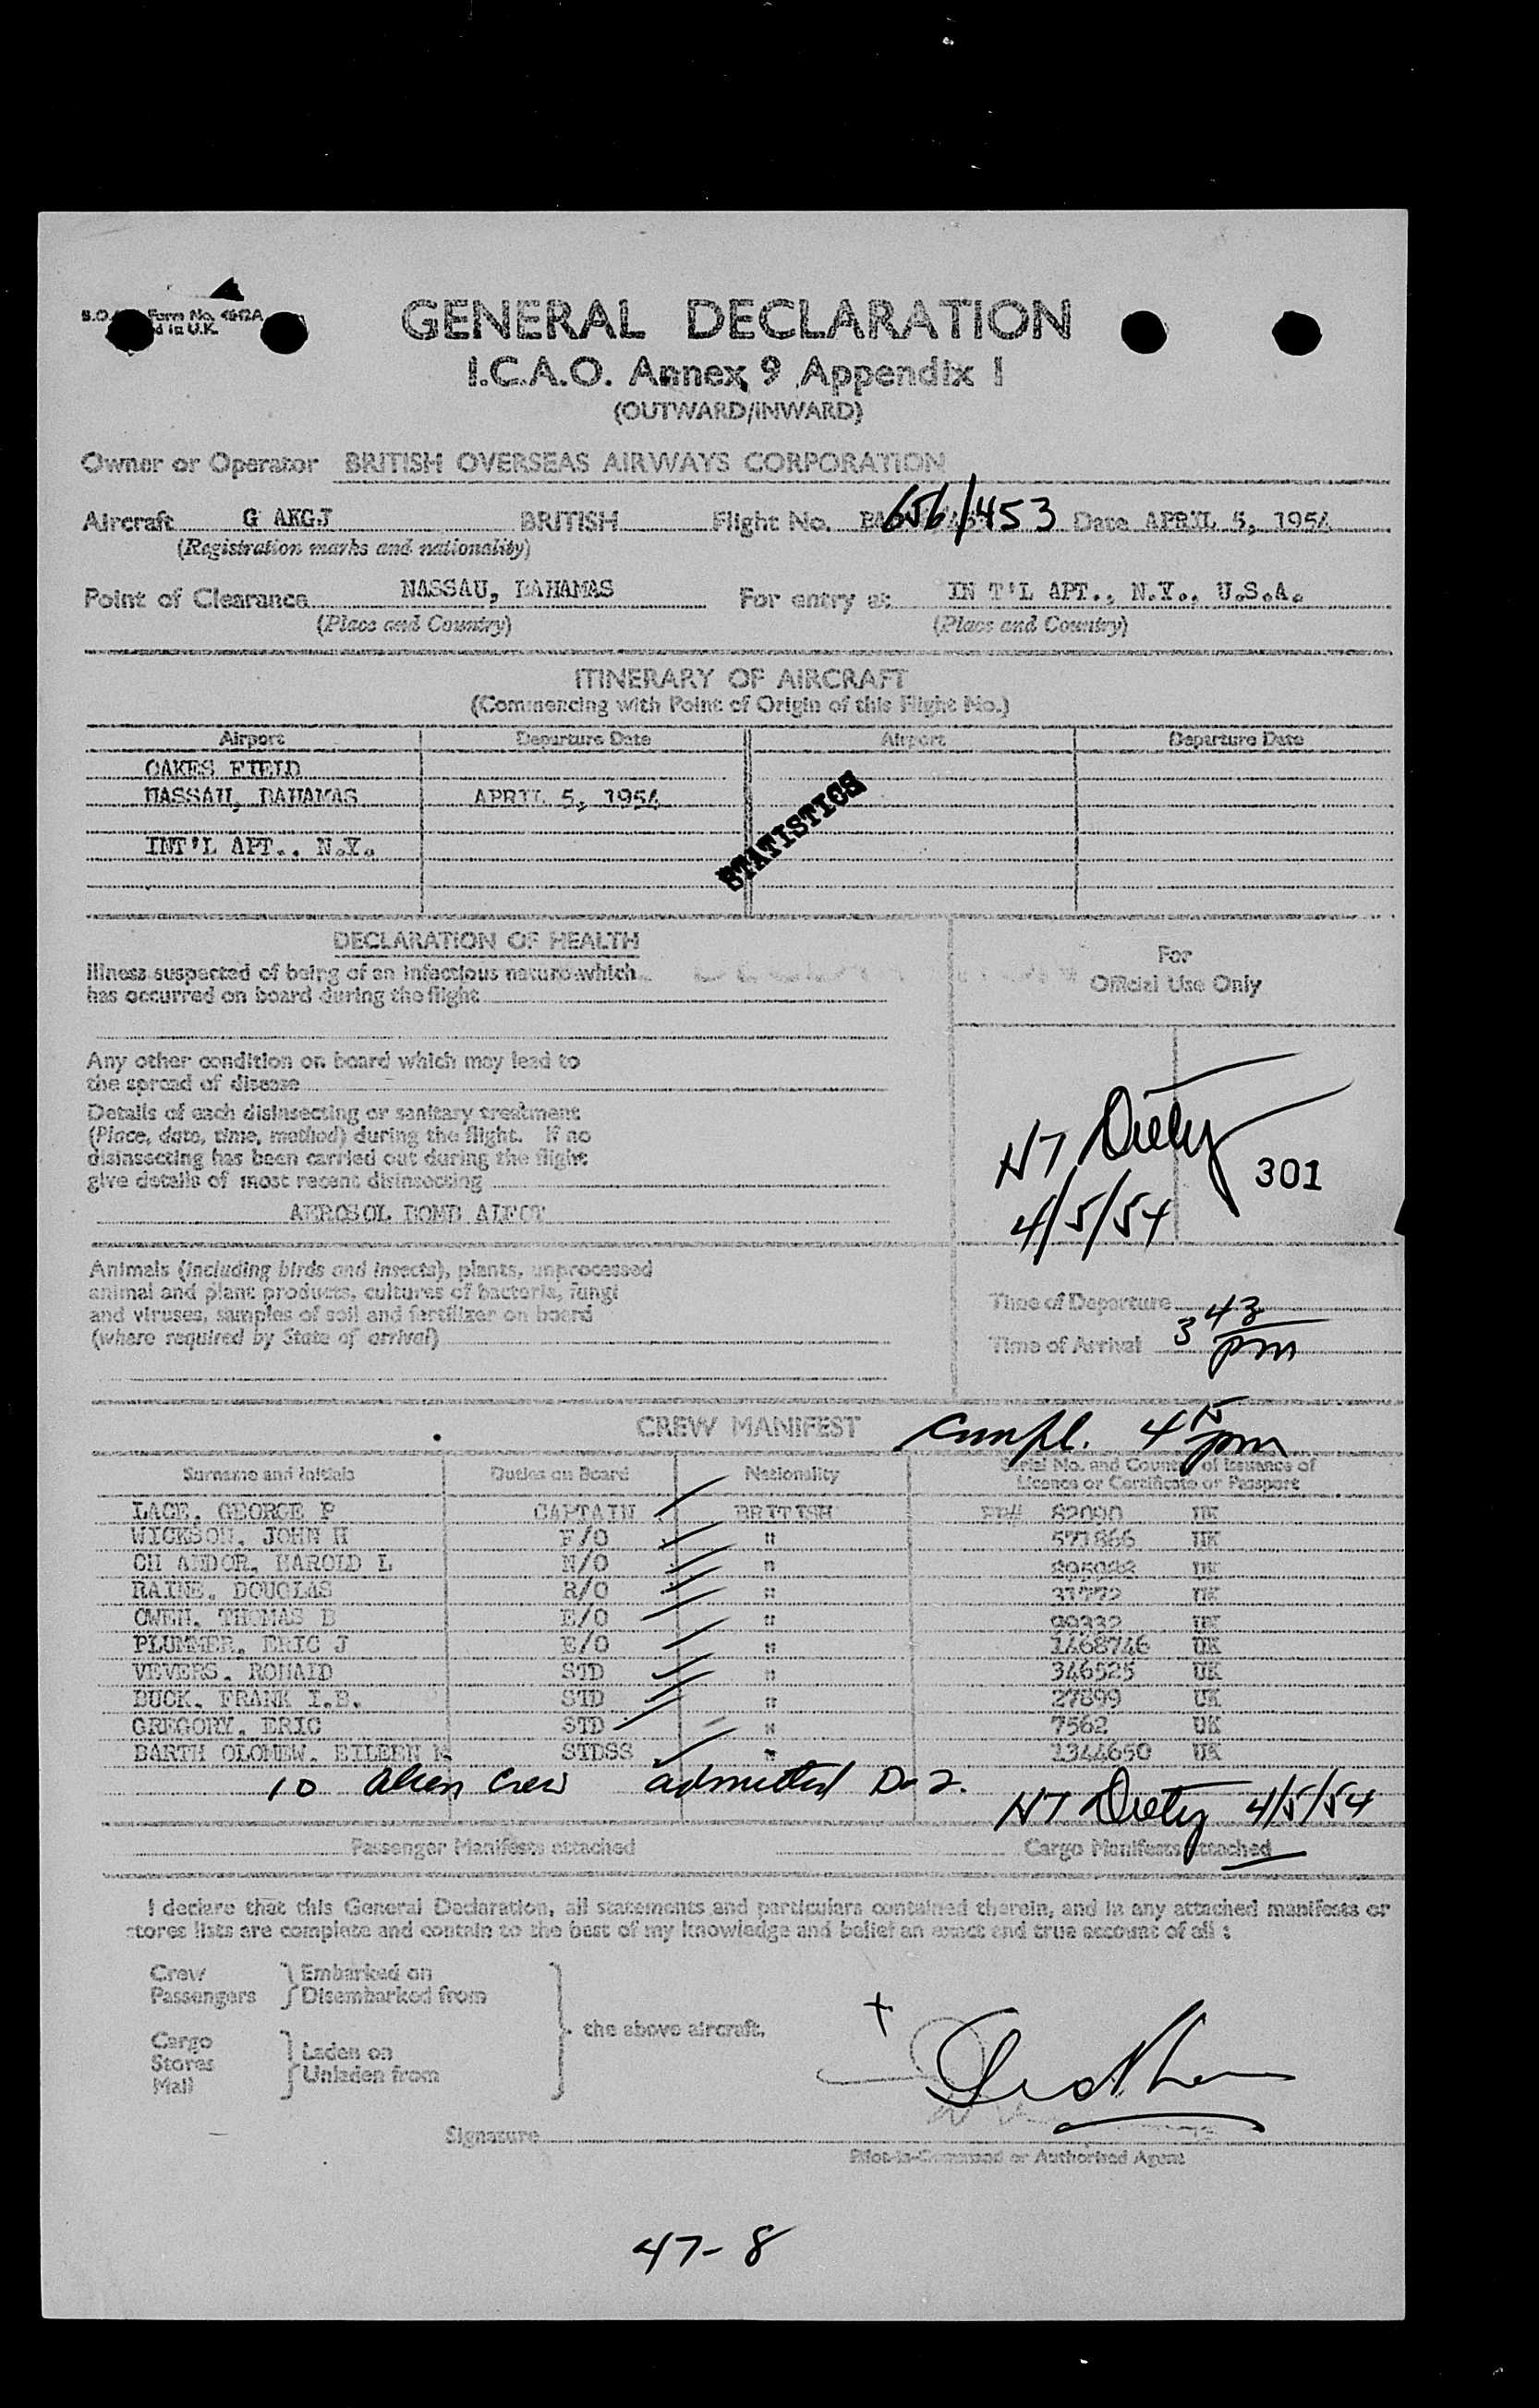 Form No.
GENERAL DECLARATION
I.C.A.O. Annex 9 Appendix I
(OUTWARD/INWARD)
Owner or Operator BRITISH OVERSEAS AIRWAYS CORPORATION
Aircraft G AKGJ BRITISH Flight No. BA 656/453 Date APRIL 5, 1954
(Registration marks and nationality)
Point of Clearance NASSAU, BAHAMAS For entry at IN T'L APT., N.Y., U.S.A.
(Place and Country) (Place and Country)
ITINERARY OF AIRCRAFT
(Commencing with Point of Origin of this Flight No.)
Airport Departure Date Airport Departure Date
OAKES FIELD
NASSAU, BAHAMAS APRIL 5, 1954
STATISTICS
INT'L APT., N.Y.
DECLARATION OF HEALTH
For
Official Use Only
Illness suspected of being of an infectious nature which
has occurred on board during the flight
Any other condition on board which may lead to
the spread of disease
Details of each disinsecting or sanitary treatment
(Place, date, time, method) during the flight. If no
disinsecting has been carried out during the flight
give details of most recent disinsecting
301
4/5/54
AEROSOL BOMB
Animals (including birds and insects), plants, unprocessed
animal and plant products, cultures of bacteria, fungi
and viruses, samples of soil and fertilizer on board
(where required by State of arrival)
Time of Departure
Time of Arrival 3 43 pm
CREW MANIFEST compl. 4 15 pm
Surname and Initials Duties on Board Nationality Serial No. and Country of Issuance of
Licence or Certificate or Passport
LACE, GEORGE P CAPTAIN BRITISH PP# 82090 UK
WICKSON, JOHN H F/O " 571866 UK
CH ANDOR, HAROLD L N/O " UK
RAINE, DOUGLAS R/O " 31772 UK
OWEN, THOMAS B E/O " 99332 UK
PLUMMER, ERIC J E/O " 1468746 UK
VEVERS, RONALD STD " 346525 UK
BUCK, FRANK I.B. STD " 27899 UK
GREGORY, ERIC STD " 7562 UK
BARTH OLOMEW, EILEEN M STDSS " 1344650 UK
10 alien crew admitted D-2. 4/5/54
Passenger Manifests attached Cargo Manifests attached
I declare that this General Declaration, all statements and particulars contained therein, and in any attached manifests or
stores lists are complete and contain to the best of my knowledge and belief an exact and true account of all :
Crew Embarked on
Passengers Disembarked from
the above aircraft.
Cargo
Stores Laden on
Mail Unladen from
Signature
Pilot-in-Command or Authorised Agent
47-8